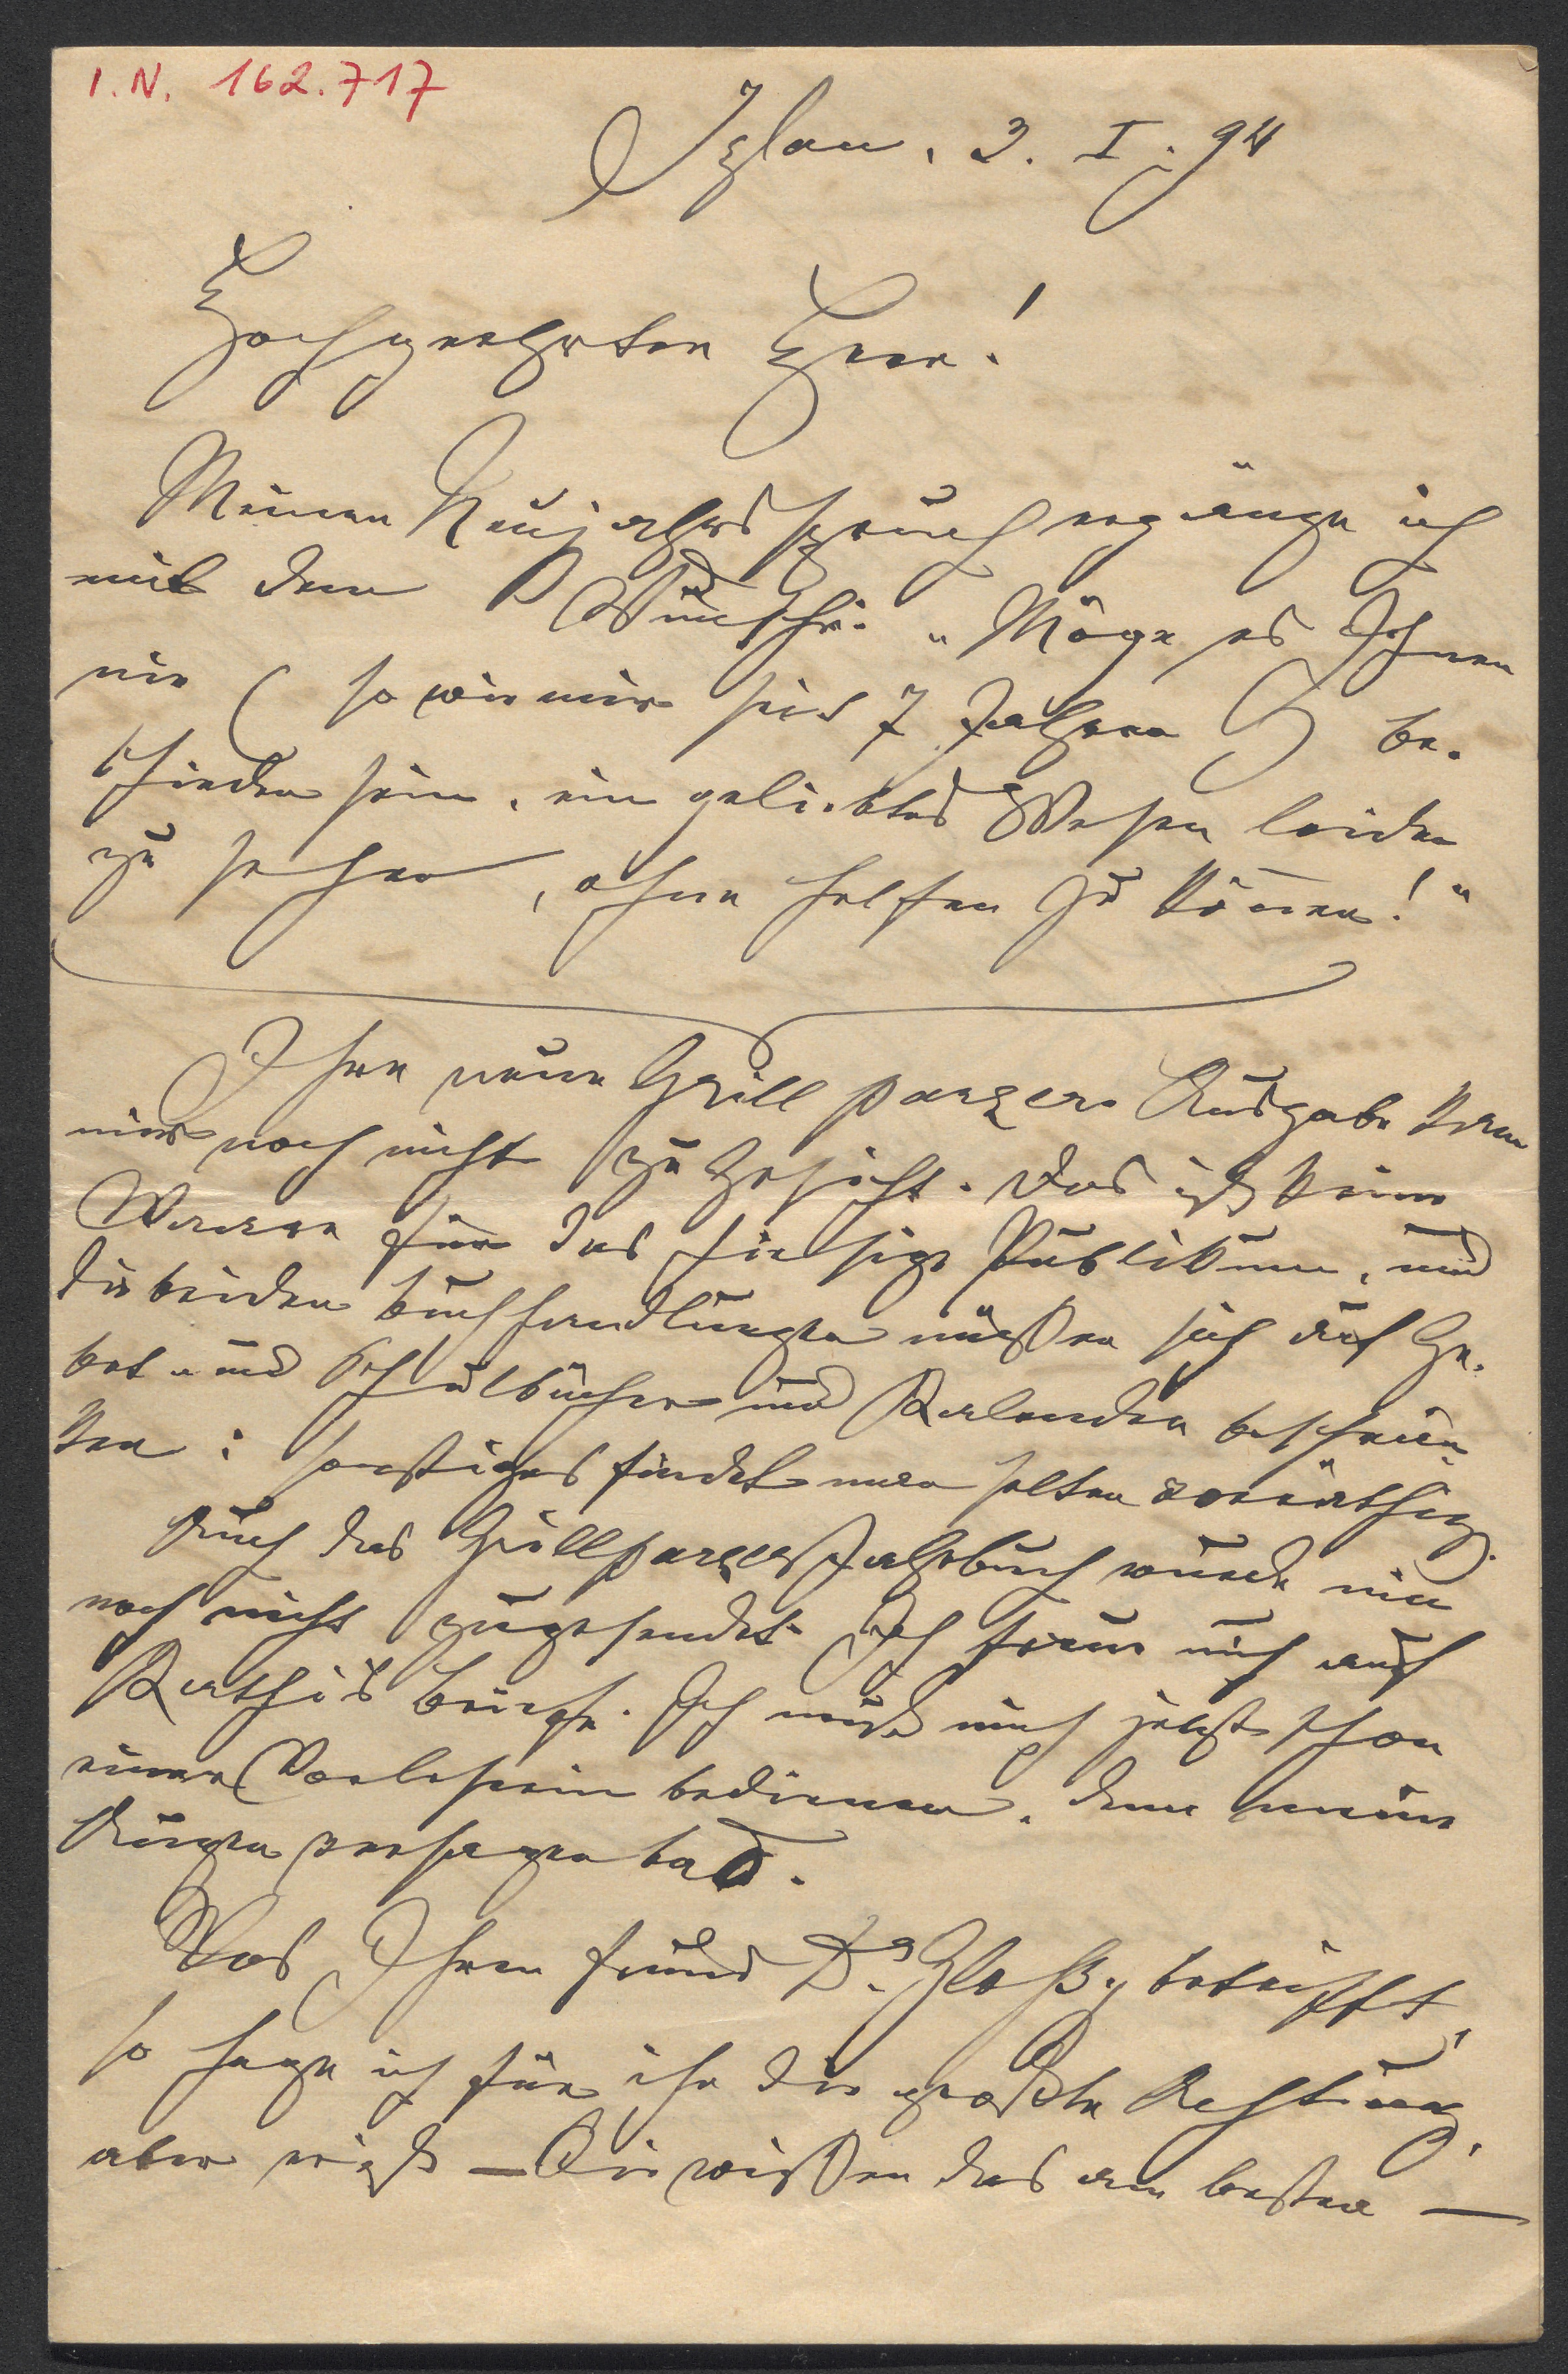 I.N. 162.717
Iglau, 3. I. 94
Hochgeehrter Herr!
Meinen Neujahrsspruch ergänze ich
mit dem Wunsche: „Möge es Ihnen
nie (so wie mir seit 7 Jahren) be-
schieden sein, ein geliebtes Wesen leiden
zu sehen, ohne helfen zu können!"
Ihre neue Grillparzer Ausgabe kam
mir noch nicht zu Gesicht. Das ist keine
Waare für das hiesige Publikum, und
die beiden Buchhandlungen müßen sich auf Ge-
bet- und Schulbücher und Kalender beschrän-
ken; sonstiges findet man selten vorräthig.
Auch das Grillparzer Jahrbuch wurde mir
noch nicht zugesendet. Ich freue mich auf
Kathi's Briefe. Ich muß mich jetzt schon
einer Vorleserin bedienen, denn meine
Augen versagen bad.
Was Ihren Freund Dr. Gloßy betrifft,
so hege ich für ihn die größte Achtung,
aber nicht — Sie wißen das am besten —